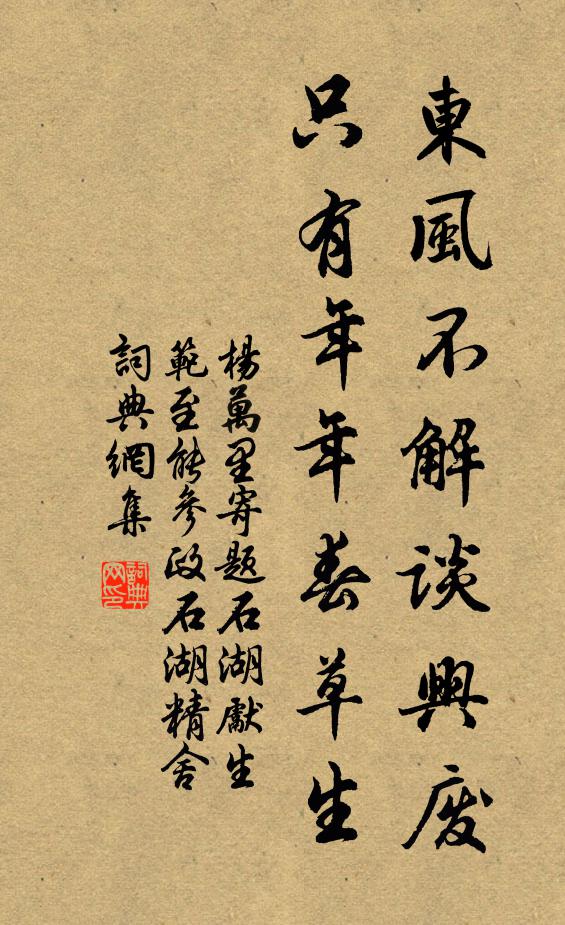 東風不解談興废
只有年年春草生
楊萬里寄題石湖獻生
範至能參政石湖精舍
詞典網集
詞典网印